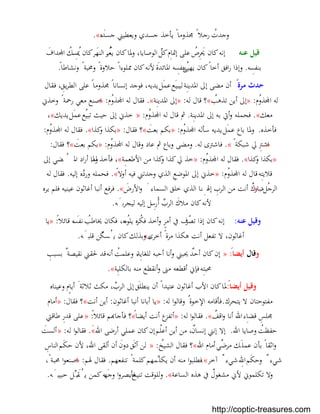 وجدتُ رجلاً مجذوماً يأخذ جسدي ويعطيني جسده».
قيل عنه إنه كان يحرص على إتمام كل الوصايا، ولما كان يعبر النهر كان يمسك المجداف
بنفسه. وإذا رافق أخاً كان يهيئ بنفسه المائدة لأنه كان مملوءاً حلاوةً ومحبة ونشاطاً.
حدث مرةً أن مضى إلى المدينة ليبيع عمل يديه، فوجد إنساناً مجذوماً على الطريق، فقال
له المجذوم: «إلى أين تذهب»؟ قال له: «إلى المدينة». فقال له المجذوم: «اصنع معي رحمة وخذني
معك». فحمله وأتى به إلى المدينة. ثم قال له المجذوم: «خذني إلى حيث تبيع عمل يديك»،
فأخذه. ولما باع عمل يديه سأله المجذوم: «بكم بعت»؟ فقال: «بكذا وكذا». فقال له المجذوم:
«اشترِ لي شبكة». فاشترى له. ومضى وباع ثم عاد وقال له المجذوم: «بكم بعت»؟ فقال:
«بكذا وكذا». فقال له المجذوم: «خذ لي كذا وكذا من الأطعمة»، فأخذ له. ولما أراد أن يمضي إلى
قلايته قال له المجذوم: «خذني إلى الموضع الذي وجدتني فيه أولاً». فحمله ورده إليه. فقال له
الرجل: «مباركٌ أنت من الرب إلهنا الذي خلق السماء والأرض». فرفع أنبا أغاثون عينيه فلم يره
لأنه كان ملاك الرب أُرسل إليه ليجربه.
وقيل عنه: إنه كان إذا تصرف في أمرٍ وأخذ فكره يلومه، فكان يخاطب نفسه قائلاً: «يا
أغاثون، لا تفعل أنت هكذا مرةً أخرى»، وبذلك كان يُسكِّن قلبه.
وقال أيضاً: «إن كان أحدٌ يحبني وأنا أحبه للغاية، وعلمتُ أنه قد لحقني نقيصةٌ بسبب
محبته فإني أقطعه مني وأنقطع منه بالكلية».
وقيل أيضاً: لما كان الأب أغاثون عتيداً أن ينطلق إلى الرب، مكث ثلاثة أيام وعيناه
مفتوحتان لا يتحرك. فأقامه الإخوة وقالوا له: «يا أبانا أنبا أغاثون: أين أنت»؟ فقال: «أمام
مجلس قضاء الله أنا واقفٌ». فقالوا له: «أتفزع أنت أيضاً»؟ فأجابهم قائلاً: «على قدر طاقتي
حفظتُ وصايا الله. إلا إنني إنسانٌ، من أين أعلم إن كان عملي أرضى الله». فقالوا له: «ألستَ
واثقاً بأن عملك مرضيٌ أمام الله»؟ فقال الشيخ: «لن أثق دون أن ألقى الله، لأن حكم الناس
شيءٌ وحكم الله شيءٌ آخر». فطلبوا منه أن يكلمهم كلمةً تنفعهم. فقال لهم: «اصنعوا محبةً،
ولا تكلموني لأني مشغولٌ في هذه الساعة». وللوقت تنيح. فأبصروا وجهه كمن يُقبِّل حبيبه.
http://coptic-treasures.com